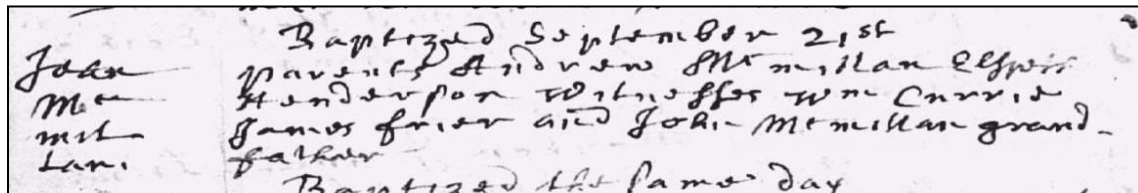 Baptized September 21st
John parents Andrew Mcmillan Elspeit
Mc Henderson Witnesses Wm Currie
mil James frier and John Mcmillan grand-
lan. father
Baptized the same day